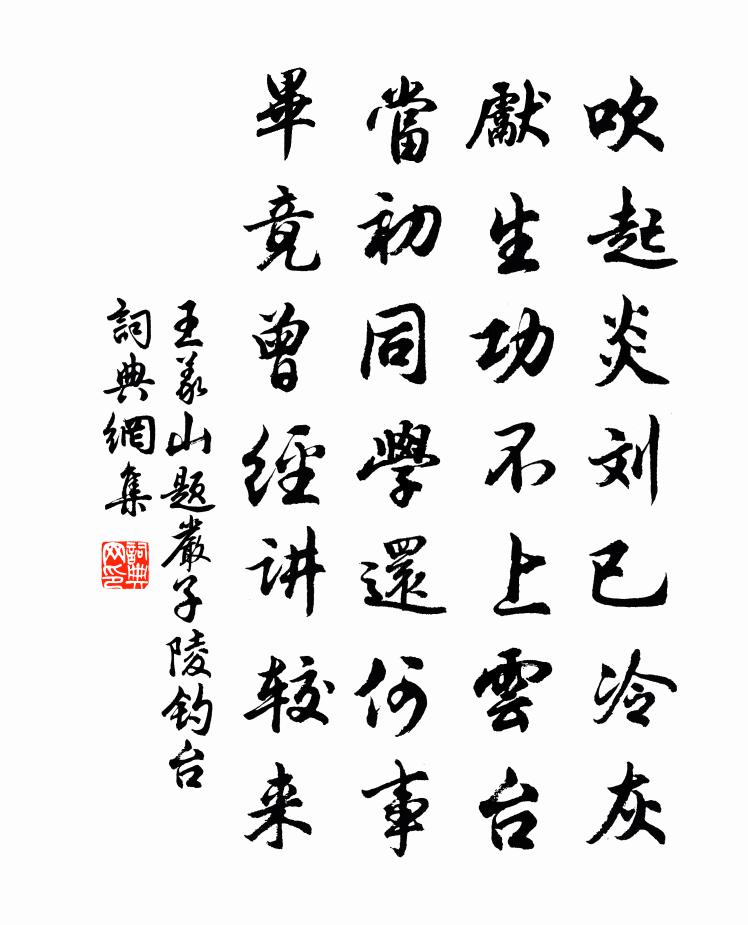 吹起炎刘已冷灰
獻生功不上雲台
當初同學還何事
畢竟曾經讲较来
王義山题嚴子陵钓台
詞典網集
詞典网印